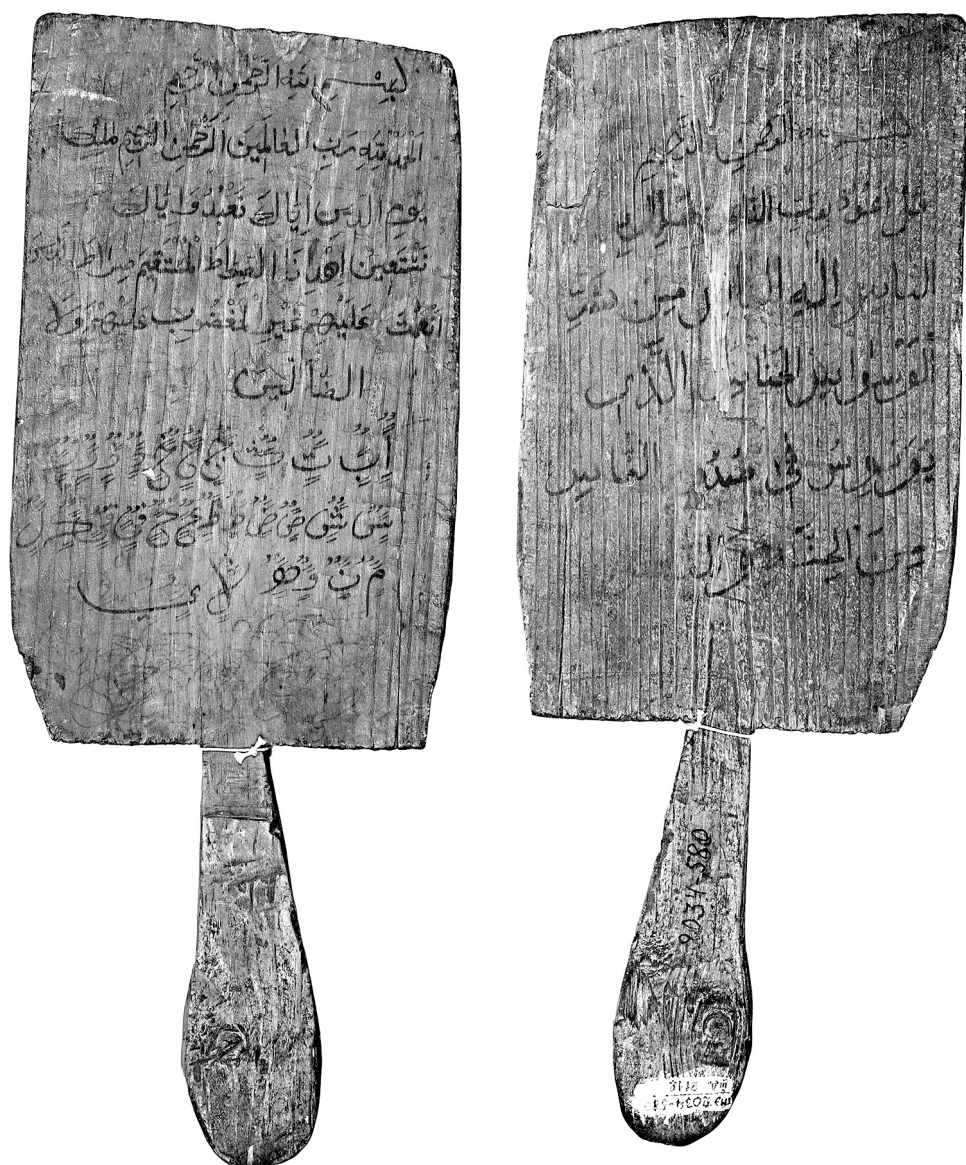 بسم الله الرحمن الرحيم
الحمد لله رب العالمين الرحمن الرحيم ملك
يوم الدين اياك نعبدوا اياك
نستعين اهدنا الصراط المستقيم صراط
انعمت عليهم غير المغضوب عليهم ولا
الضالين
ا ب ت ث ج ح خ د ذ ر ز
س ش ص ض ط ظ ع غ ف ق ك ل
م ن و ه لا ي
بسم الله الرحمن الرحيم
قل اعوذ برب
الناس اله الناس من شر
الوسواس الخناس الذي
يوسوس في صدور الناس
من الجنة
2034-580